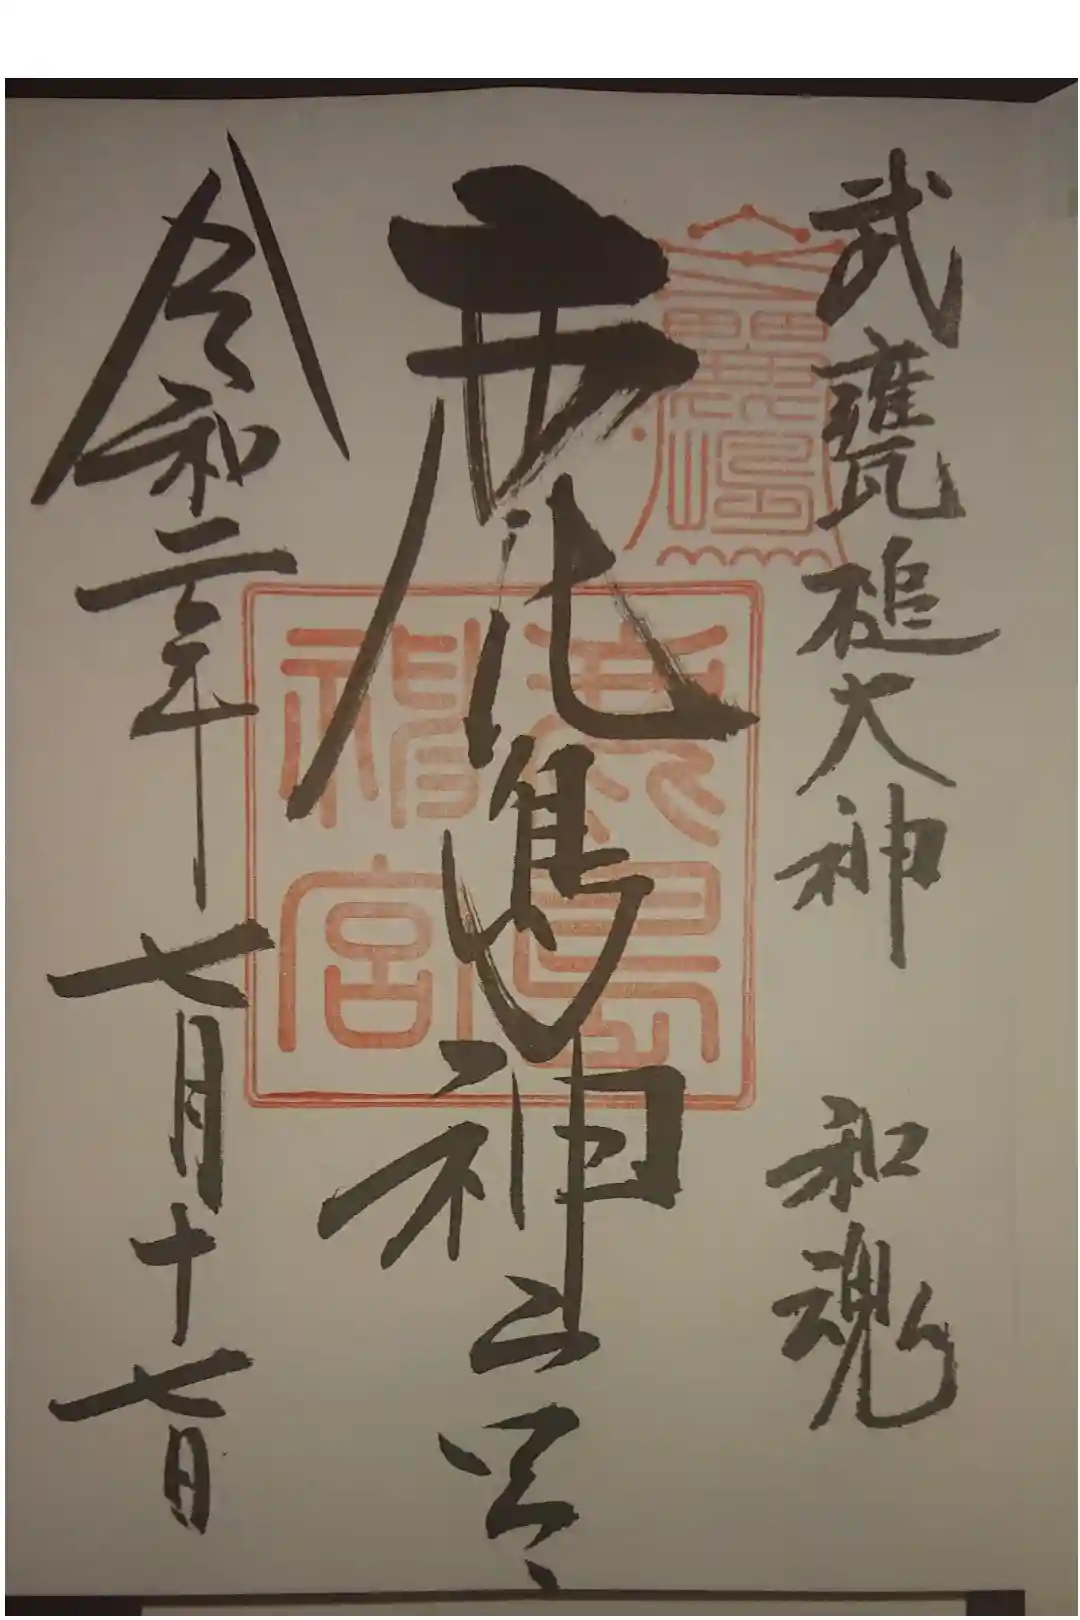 武甕槌大神 和魂
鹿島神宮
令和二年七月十七日
鹿島神宮